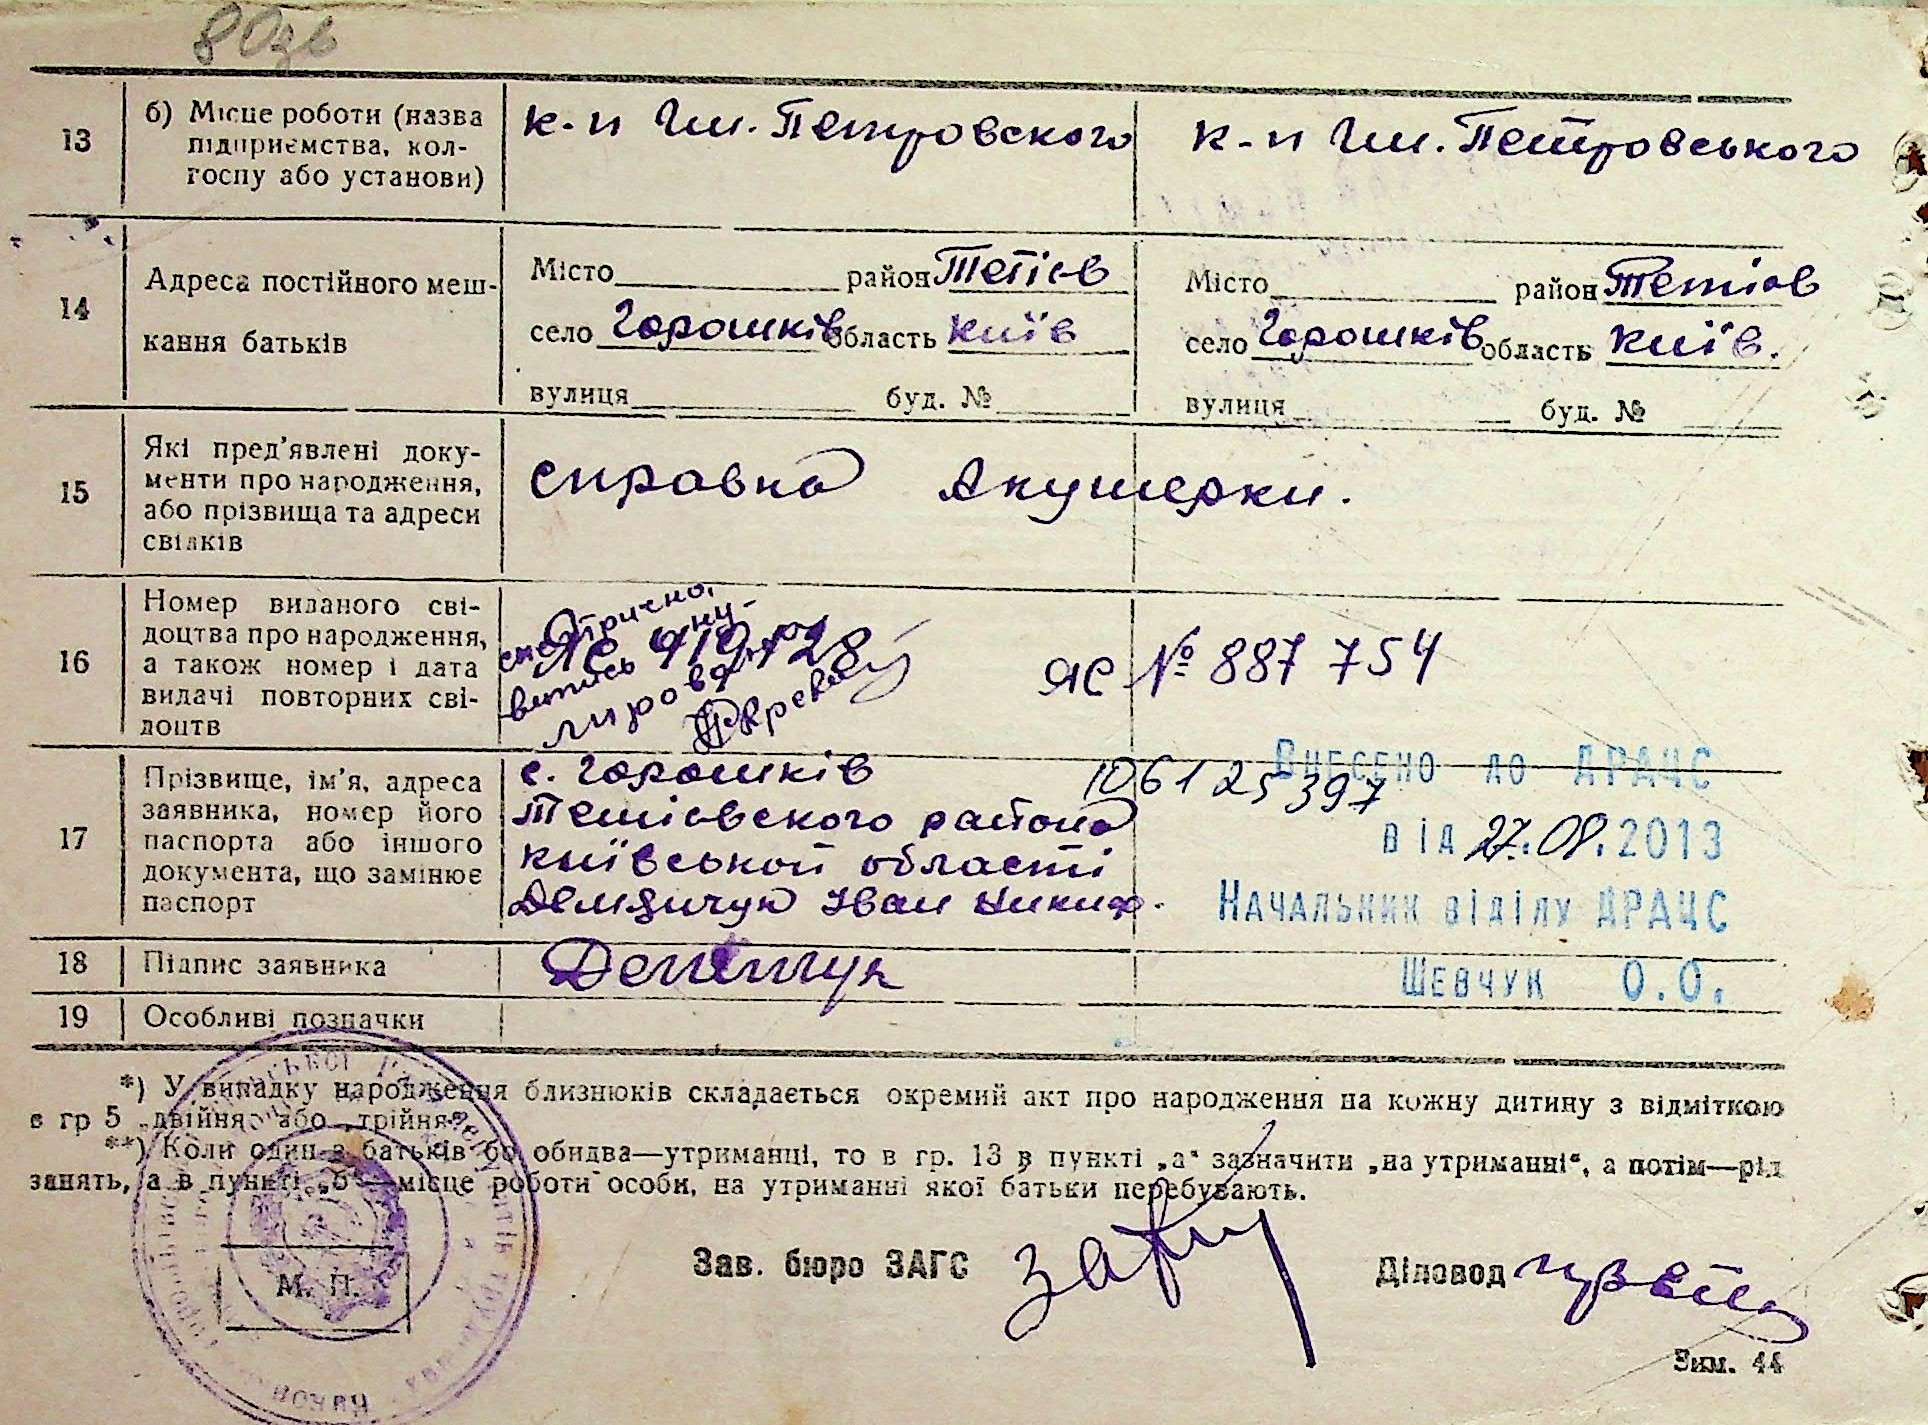 80зв
13
б) Місце роботи (назва
підприємства, кол-
госпу або установи)
к-п Ім. Петровского
к-п Ім. Петровського
14
Адреса постійного меш-
кання батьків
Місто район Тетіев
село Горошків область Київ
вулиця буд. №
Місто район Тетіев
село Горошків область Київ.
вулиця буд. №
15
Які пред'явлені доку-
менти про народження,
або прізвища та адреси
свідків
справка Акушерки.
16
Номер виданого сві-
доцтва про народження,
а також номер і дата
видачі повторних сві-
доцтв
ЯС № 887 754
17
Прізвище, ім'я, адреса
заявника, номер його
паспорта або іншого
документа, що замінює
паспорт
с. Горошків
Тетіевского района
Київськой області
Демянчук Іван Никиф.
106125397
Внесено до ДРАЦС
від 27.08.2013
Начальник відділу ДРАЦС
Шевчук О.О.
18
Підпис заявника
19
Особливі позначки
*) У випадку народження близнюків складається окремий акт про народження на кожну дитину з відміткою
в гр 5 „двійня" або „трійня"
**) Коли один з батьків бо обидва—утриманці, то в гр. 13 в пункті „а" зазначити „на утриманні", а потім—рід
занять, а в пункті „б"—місце роботи особи, на утриманні якої батьки перебувають.
М. П.
Зав. бюро ЗАГС
Діловод
Зим. 44